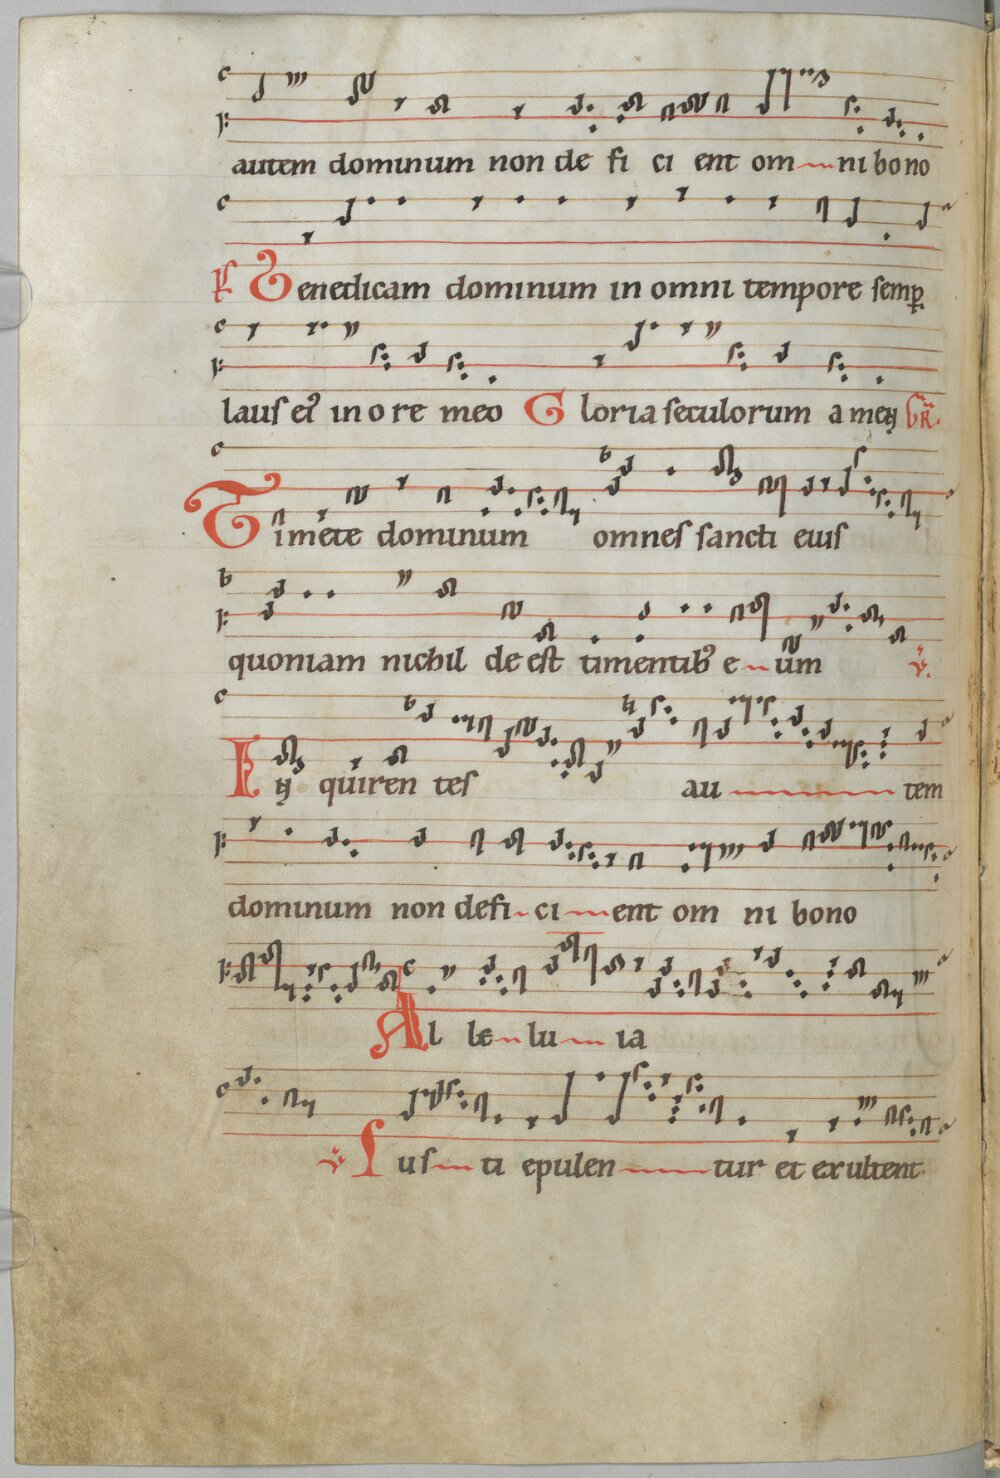 autem dominum non de fi ci ent om ni bono
Benedicam dominum in omni tempore semp
laus eius in ore meo Gloria seculorum amen GR.
Timete dominum omnes sancti eius
quoniam nichil deest timentib; e um V.
Inquirentes au tem
dominum non defi ci ent om ni bono
Al le lu ia
V. Iusti epulentur et exultent